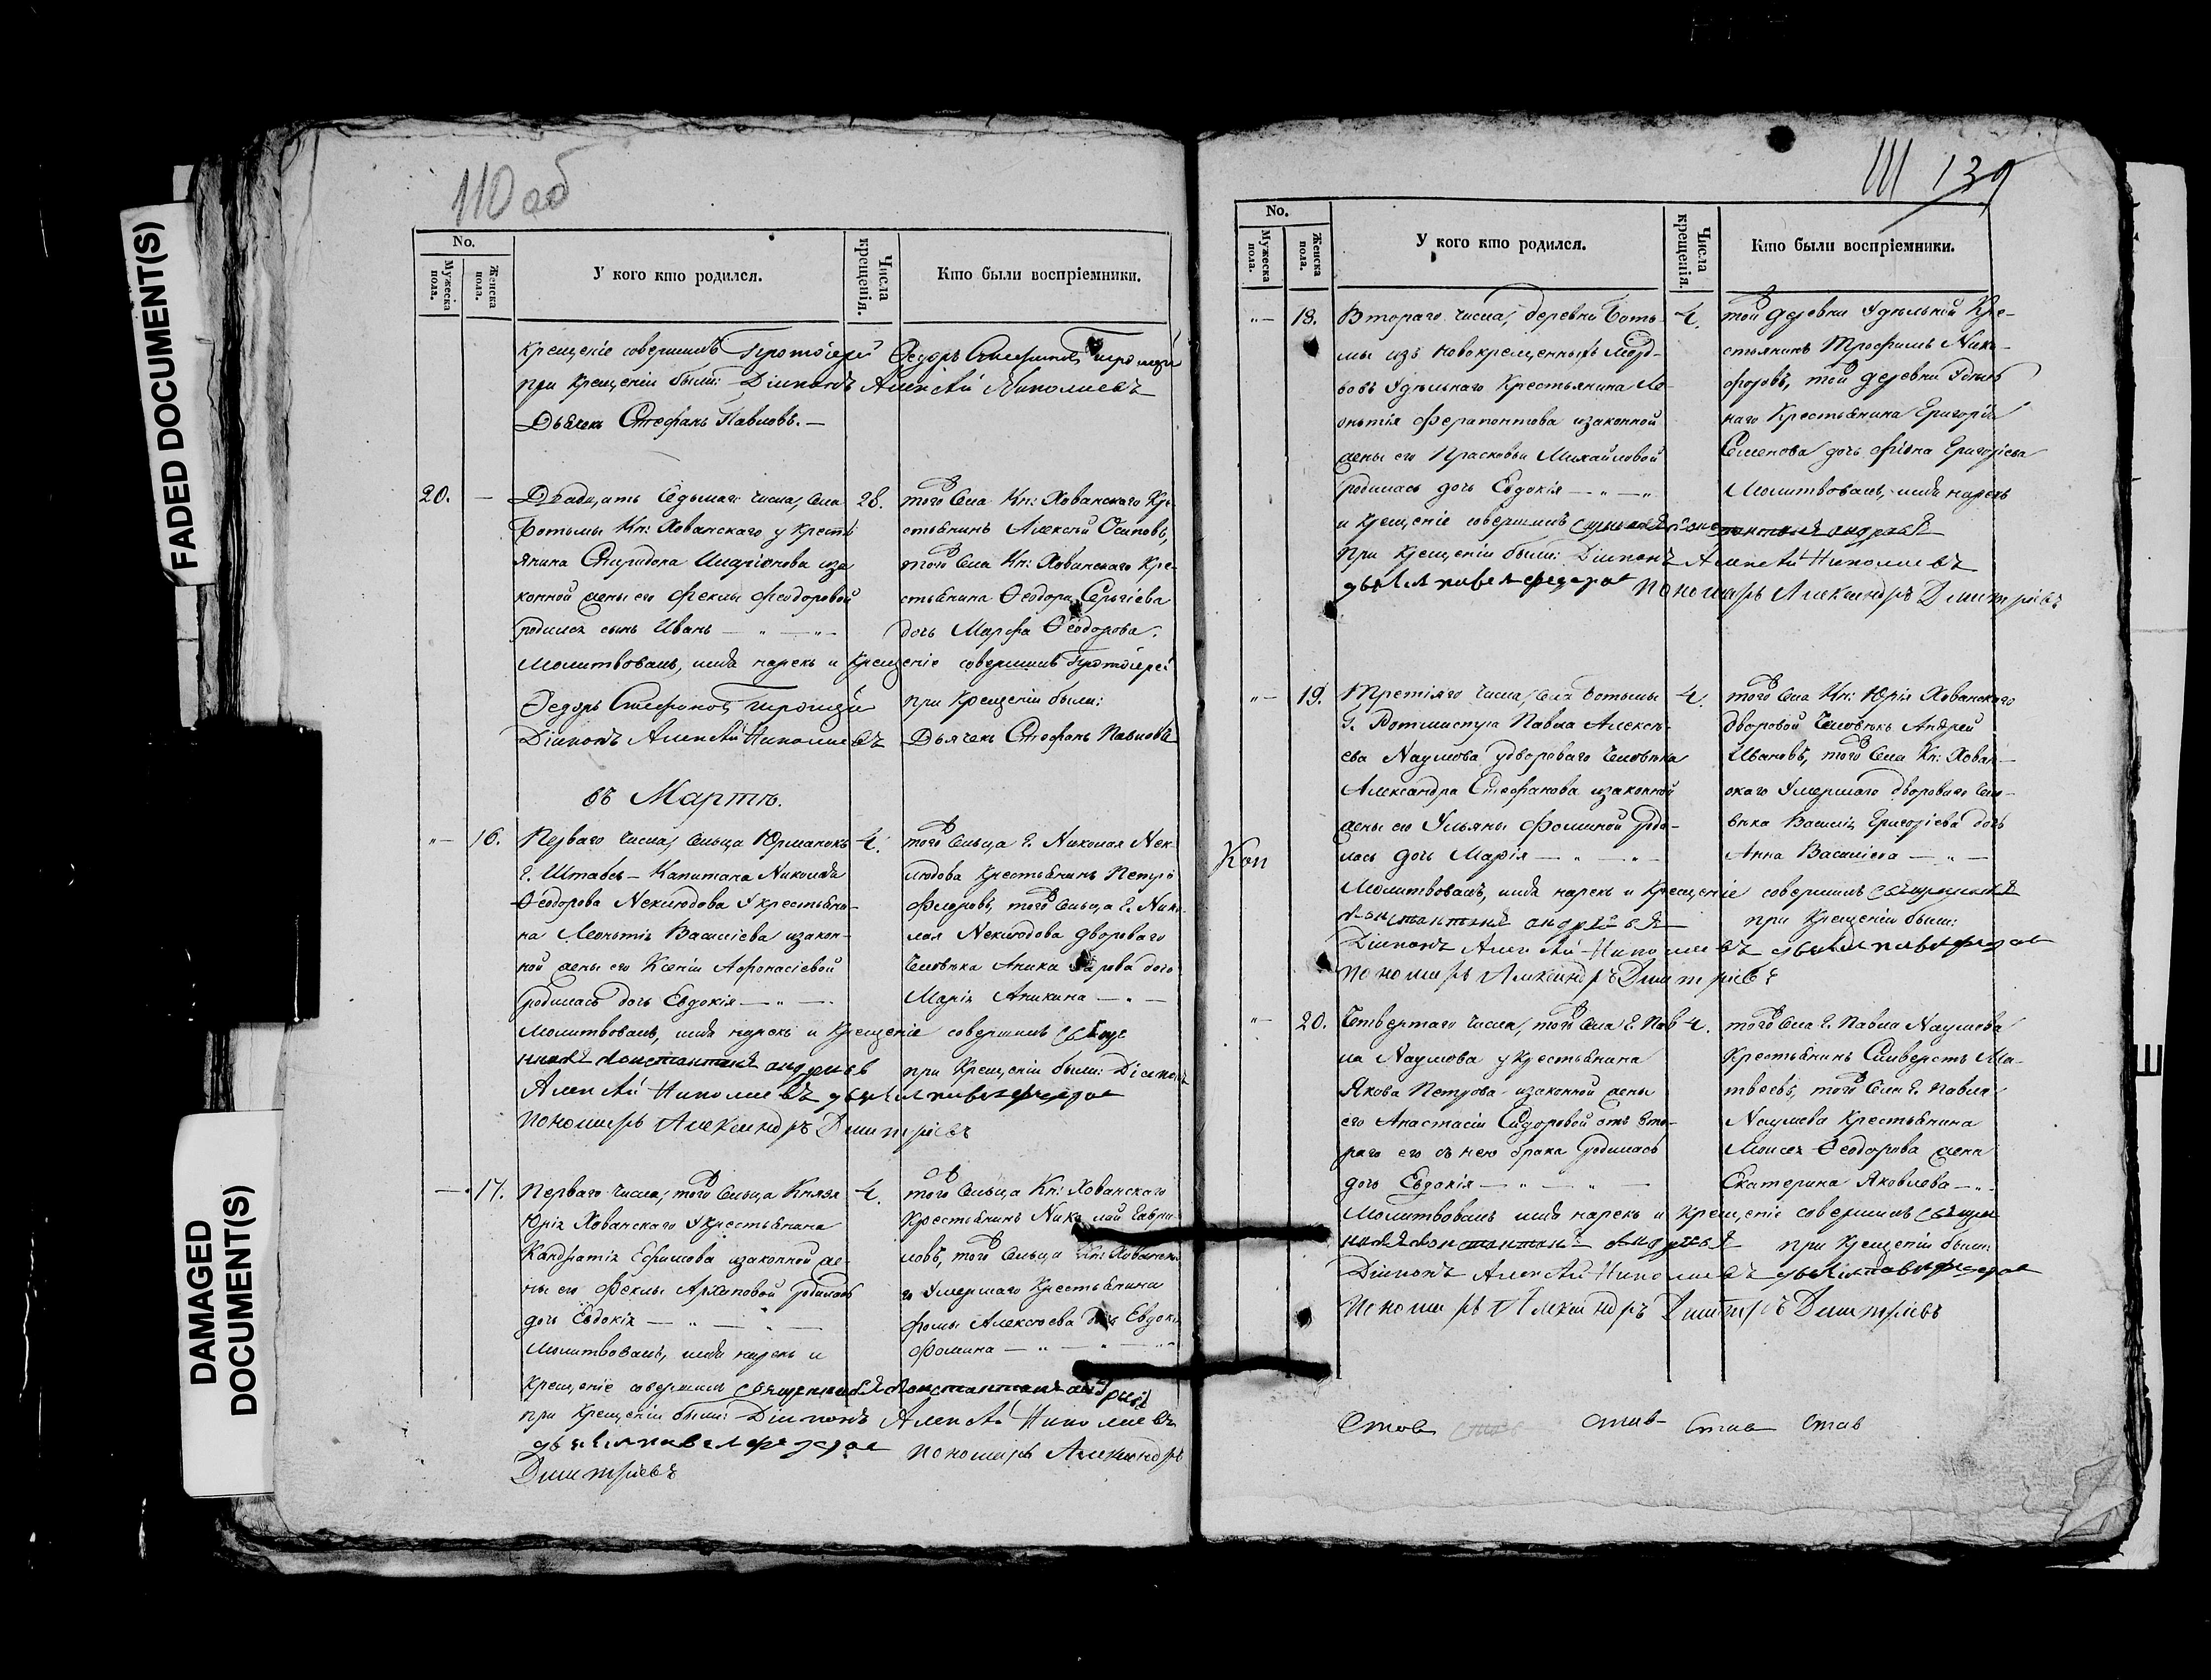 FADED DOCUMENT(S)
DAMAGED
DOCUMENT(S)
110 об
No.
Мужеска пола.
Женска пола.
У кого кто родился.
Числа крещенія.
Кто были воспріемники.
Крещеніе совершилъ Протоіерей Ѳедоръ
при крещеніи были: Діаконъ Алексѣй Николаевъ
Дьячекъ Стефанъ Павловъ. —
20. —
Двадцать седьмаго числа, села
Ботьмы Кн: Хованскаго у кресть
янина Спиридона Иларіонова изза
конной жены его Феклы Феодоровой
родился сынъ Иванъ — „ — „ —
28.
того села Кн: Хованскаго Кре
стьянинъ Алексѣй Осиповъ,
того села Кн: Хованскаго Кре
стьянина Ѳеодора Сергіева
дочь Марфа Ѳеодорова.
Молитвовалъ, имя нарекъ и Крещеніе совершилъ Протоіерей
Ѳедоръ при Крещеніи были:
Діаконъ Алексѣй Николаевъ Дьячекъ Стефанъ Павловъ
въ Мартѣ.
„ — 16.
Перваго числа, сельца Юрманокъ
Г. Штабсъ-Капитана Николая
Ѳеодорова Неклюдова у крестьяни-
на Леонтія Василіева иззакон-
ной жены его Ксеніи Афонасіевой
родилась дочь Евдокія — „ —
4.
того сельца Г. Николая Нек-
людова Крестьянинъ Петръ
того сельца Г. Нико-
лая Неклюдова двороваго
человѣка Аника дочь
Марія Аникина — „ —
Молитвовалъ, имя нарекъ и Крещеніе совершилъ Свяще
нникъ Константинъ Андреевъ при Крещеніи были: Діаконъ
Алексѣй Николаевъ дьячекъ Павелъ Федоровъ
пономарь Александръ Димитріевъ
— 17.
Перваго числа, того сельца Князя
Юрія Хованскаго у крестьянина
Кандратія Ефимова иззаконной же-
ны его Феклы Архиповой родилась
дочь Евдокія — „ — „ —
4.
того сельца Кн: Хованскаго
Крестьянинъ Николай Гаври-
ловъ, того сельца Кн: Хованска-
го умершаго Крестьянина
Фомы Алексѣева дочь Евдокія
Фомина — „ — „ —
Молитвовалъ, имя нарекъ и
Крещеніе совершилъ Священникъ Константинъ Андреевъ
при Крещеніи были: Діаконъ Алексѣй Николаевъ
дьячекъ Павелъ Федоровъ пономарь Александръ
Димитріевъ
111 139
No.
Мужеска пола.
Женска пола.
У кого кто родился.
Числа крещенія.
Кто были воспріемники.
„ — 18.
Втораго числа, деревни Боть-
мы изъ новокрещенныхъ Морд-
вовъ удѣльнаго Крестьянина Ле-
онтія Ферапонтова иззаконной
жены его Прасковьи Михайловой
родилась дочь Евдокія — „ — „
4.
той деревни Удѣльный Кре-
стьянинъ Трофимъ Ники-
форовъ, той деревни Удѣль
наго Крестьянина Григорія
Семенова дочь Григоріева
Молитвовалъ, имя нарекъ
и Крещеніе совершилъ Священникъ Константинъ Андреевъ
При Крещеніи были: Діаконъ Алексѣй Николаевъ
дьячекъ Павелъ Федоровъ пономарь Александръ Димитріевъ
„ — 19.
Третіяго числа, села Ботьмы
Г. Ротмистра Павла Алексѣ-
ева Наумова у двороваго человѣка
Александра Стефанова иззаконной
жены его Ульяны Фоминой роди-
лась дочь Марія — „ — „ —
4.
того села Кн: Юрія Хованскаго
дворовой человѣкъ Андрей
Ивановъ, того села Кн: Хован-
скаго Умершаго двороваго чело-
вѣка Василія Григоріева дочь
Анна Василіева — „ —
Коп
Молитвовалъ, имя нарекъ и Крещеніе совершилъ Священникъ
Константинъ Андреевъ при Крещеніи были:
Діаконъ Алексѣй Николаевъ дьячекъ Павелъ Федоровъ
пономарь Александръ Димитріевъ
„ — 20.
Четвертаго числа, того села Г. Пав
ла Наумова у крестьянина
Якова Петрова иззаконной жены
его Анастасіи Сидоровой отъ вто-
раго его съ нею брака родилась
дочь Евдокія — „ — „ —
4.
того села Г. Павла Наумова
Крестьянинъ Сиверстъ Ма-
твеевъ, того села Г. Павла
Наумова Крестьянина
Моисея Ѳеодорова жена
Екатерина Яковлева — „ —
Молитвовалъ имя нарекъ и Крещеніе совершилъ Священ
никъ Константинъ Андреевъ при Крещеніи были:
Діаконъ Алексѣй Николаевъ дьячекъ Павелъ Федоровъ
Пономарь Александръ Димитріевъ